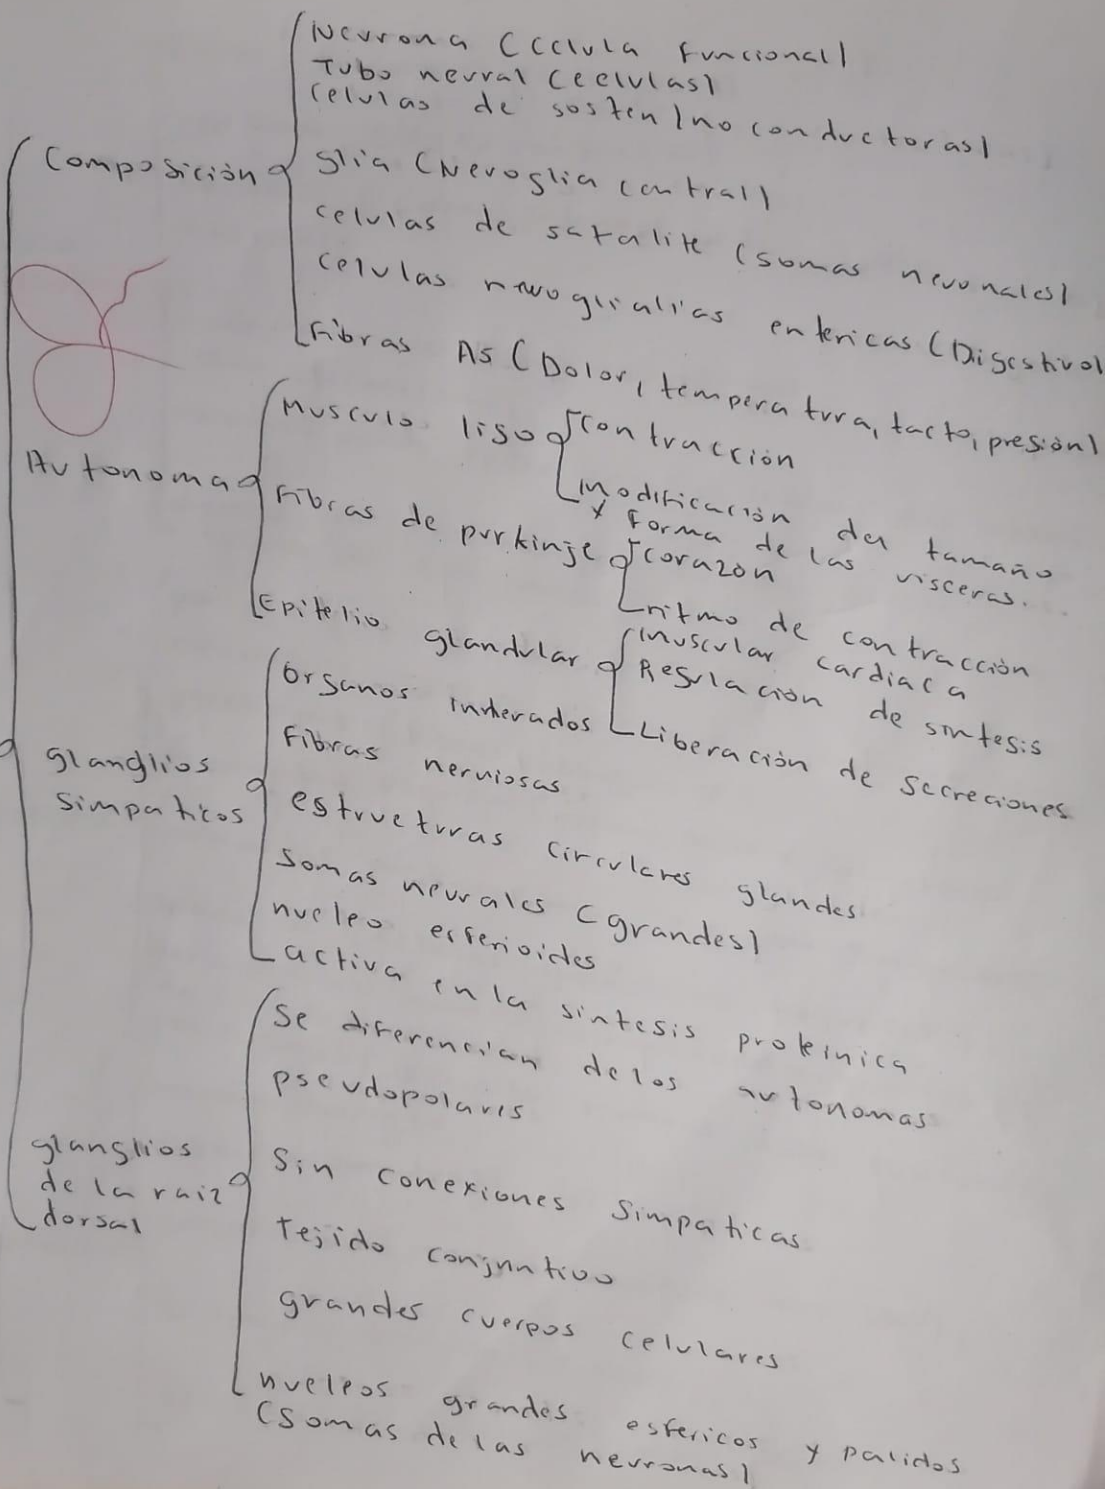 Composición
Neurona (celula funcional)
Tubo neural (celulas)
celulas de sosten (no conductoras)
glia (Neuroglia central)
celulas de satalite (somas neuonales)
celulas neuoglialias entericas (Digestivo)
Fibras Aδ (Dolor, temperatura, tacto, presión)
Autonoma
Musculo liso
contracción
Modificación del tamaño
y forma de las visceras.
Fibras de purkinje
corazon
ritmo de contracción
muscular cardiaca
Epitelio glandular
Regulación de sintesis
Liberación de secreciones
glanglios
simpaticos
Organos inverados
Fibras nerviosas
estructuras circulares glandes
Somas neurales (grandes)
nucleo esferioides
activa en la sintesis proteinica
glanglios
de la raiz
dorsal
Se diferencian de los autonomas
pseudopolares
Sin conexiones simpaticas
Tejido conjuntivo
grandes cuerpos celulares
nucleos grandes esfericos y palidos
(Somas de las neuronas)